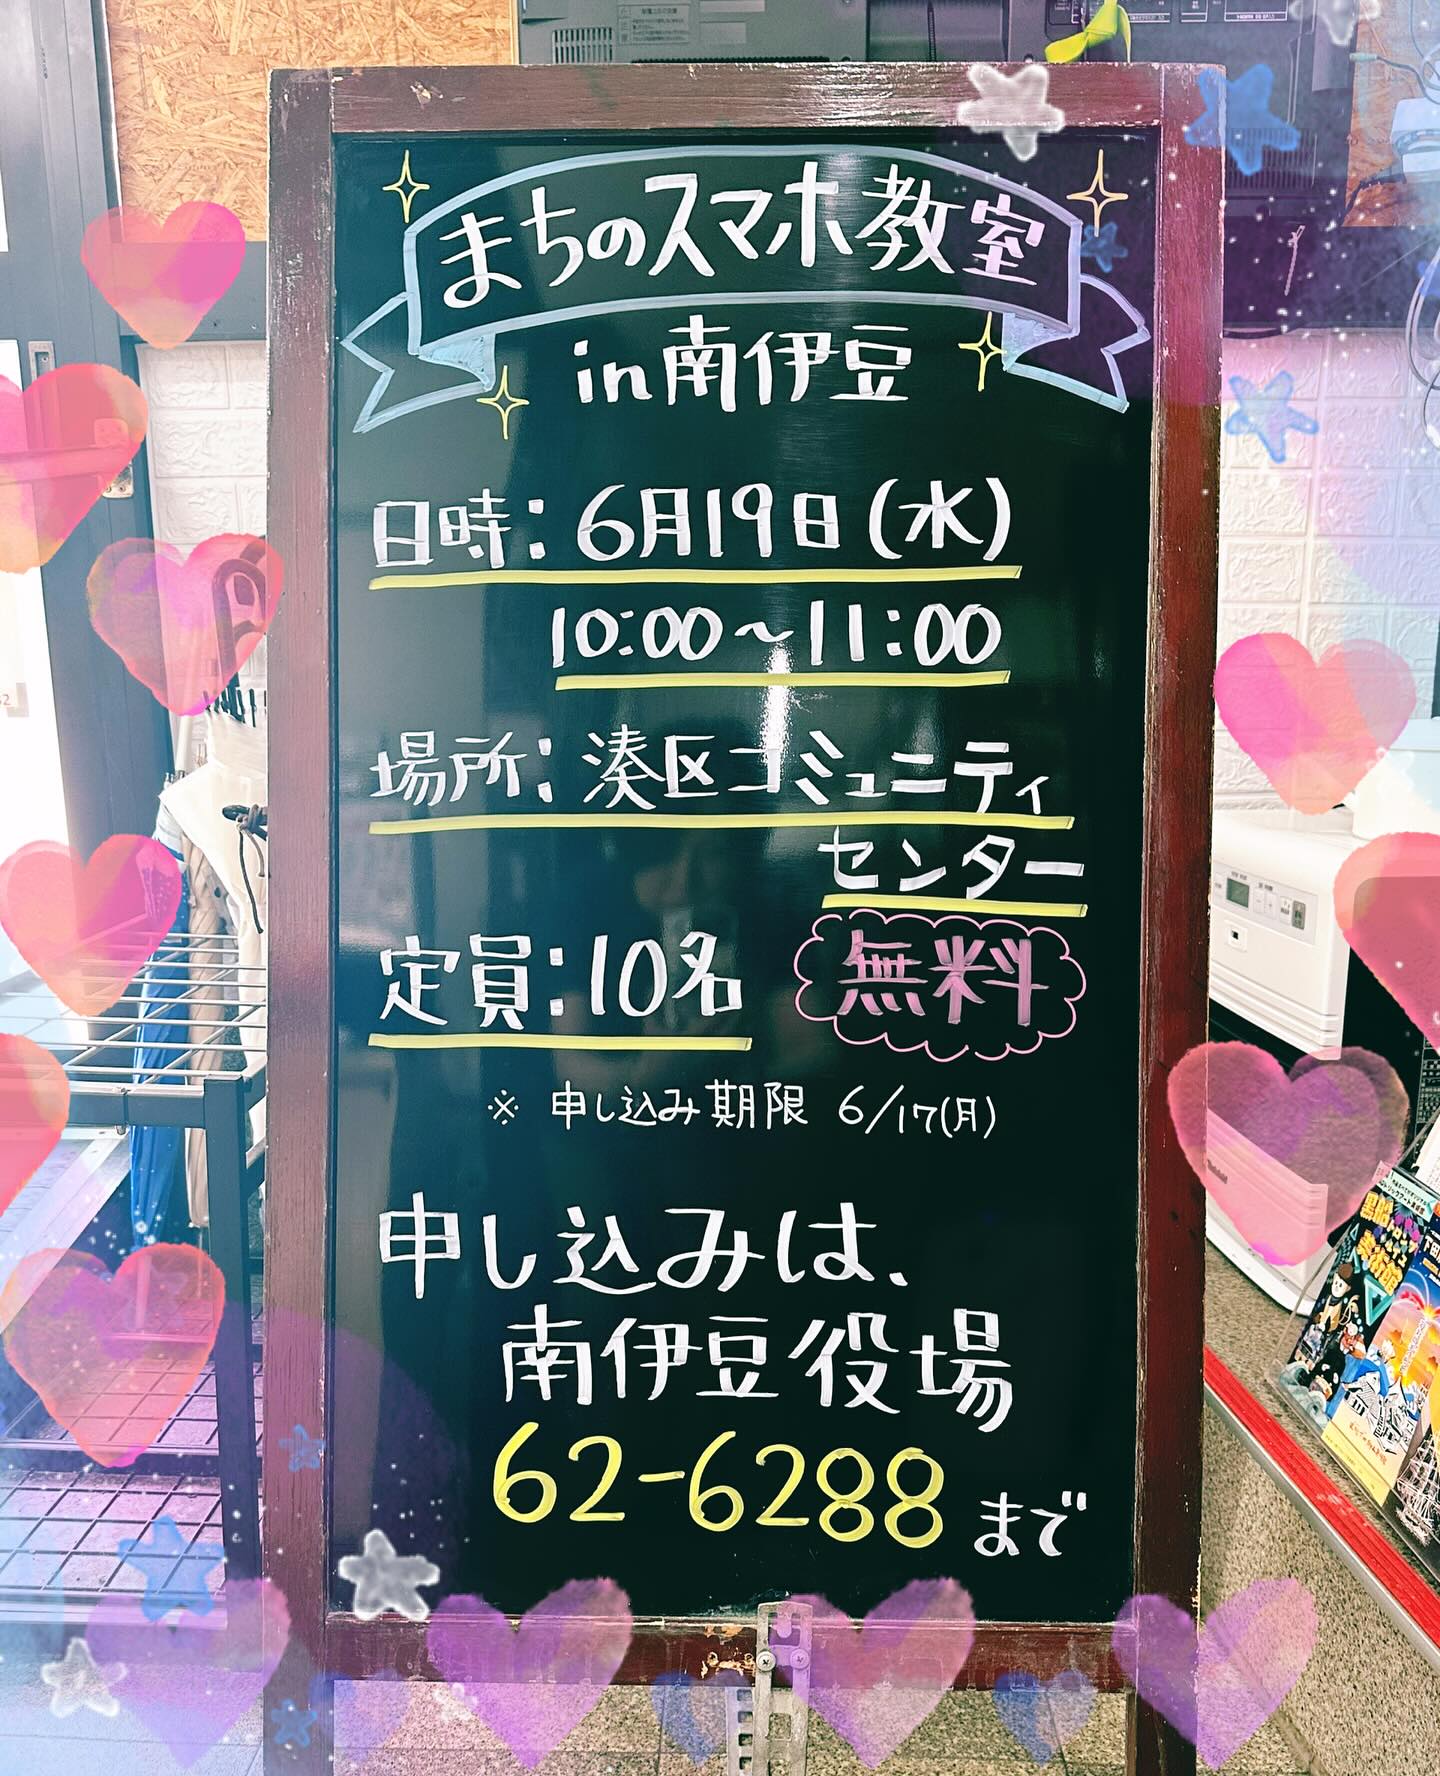 まちのスマホ教室
in南伊豆
日時：6月19日(水)
10:00〜11:00
場所：湊区コミュニティ
センター
定員：10名
無料
※ 申し込み期限 6/17(月)
申し込みは、
南伊豆役場
62-6288まで